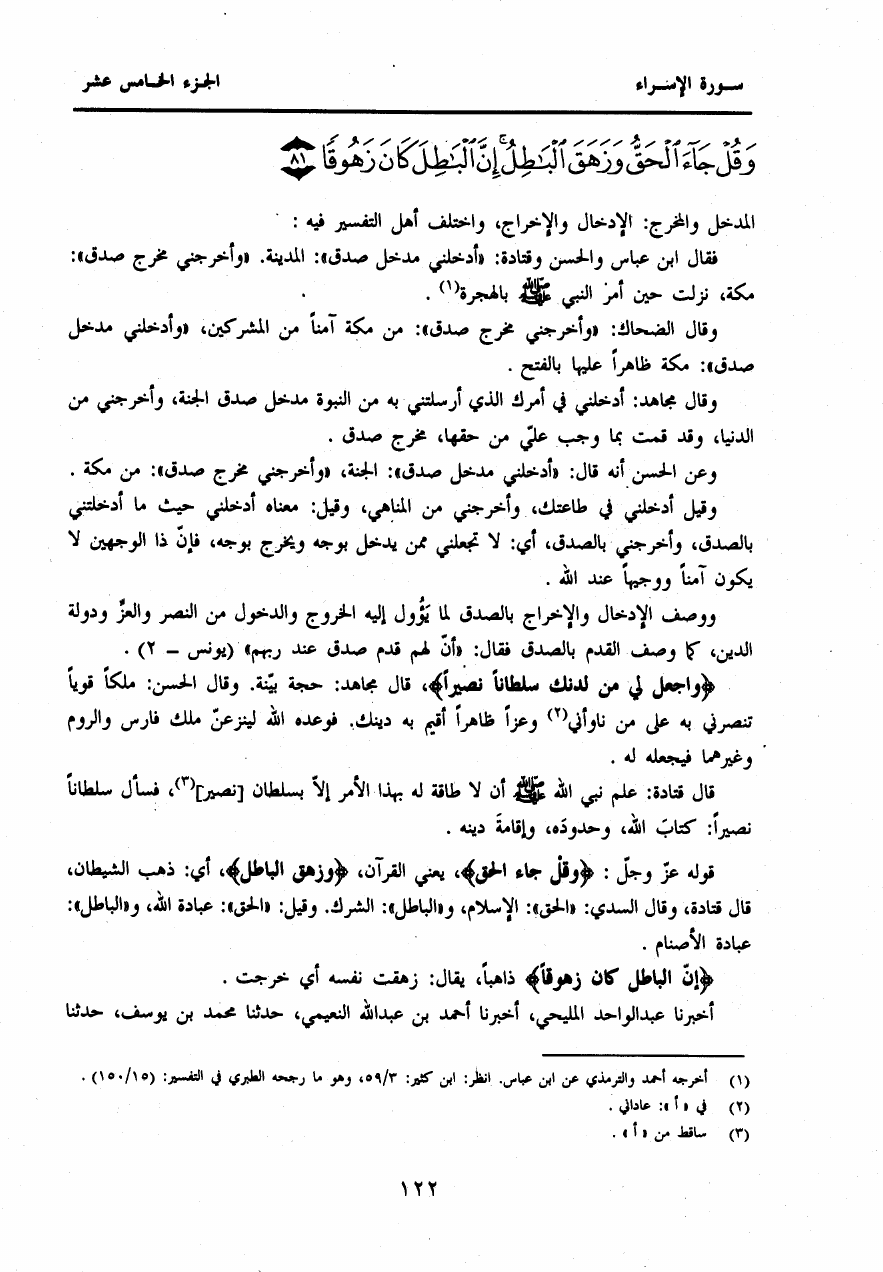 سورة الإسراء
الجزء الخامس عشر
وَقُلْ جَآءَ ٱلْحَقُّ وَزَهَقَ ٱلْبَٰطِلُ ۚ إِنَّ ٱلْبَٰطِلَ كَانَ زَهُوقًا ٨١
المدخل والمخرج: الإدخال والإخراج، واختلف أهل التفسير فيه :
فقال ابن عباس والحسن وقتادة: «أدخلني مدخل صدق»: المدينة. «وأخرجني مخرج صدق»:
مكة، نزلت حين أمر النبي ﷺ بالهجرة(١) .
وقال الضحاك: «وأخرجني مخرج صدق»: من مكة آمناً من المشركين، «وأدخلني مدخل
صدق»: مكة ظاهراً عليها بالفتح .
وقال مجاهد: أدخلني في أمرك الذي أرسلتني به من النبوة مدخل صدق الجنة، وأخرجني من
الدنيا، وقد قمت بما وجب عليّ من حقها، مخرج صدق .
وعن الحسن أنه قال: «أدخلني مدخل صدق»: الجنة، «وأخرجني مخرج صدق»: من مكة .
وقيل أدخلني في طاعتك، وأخرجني من المناهي، وقيل: معناه أدخلني حيث ما أدخلتني
بالصدق، وأخرجني بالصدق، أي: لا تجعلني ممن يدخل بوجه ويخرج بوجه، فإنّ ذا الوجهين لا
يكون آمناً ووجيهاً عند الله .
ووصف الإدخال والإخراج بالصدق لما يَؤُول إليه الخروج والدخول من النصر والعزّ ودولة
الدين، كما وصف القدم بالصدق فقال: «أنّ لهم قدم صدق عند ربهم» (يونس – ٢) .
﴿واجعل لي من لدنك سلطاناً نصيراً﴾، قال مجاهد: حجة بيّنة. وقال الحسن: ملكاً قوياً
تنصرني به على من ناوأني(٢) وعزاً ظاهراً أقيم به دينك. فوعده الله لينزعنّ ملك فارس والروم
وغيرهما فيجعله له .
قال قتادة: علم نبي الله ﷺ أن لا طاقة له بهذا الأمر إلاّ بسلطان [نصير](٣)، فسأل سلطاناً
نصيراً: كتابَ الله، وحدودَه، وإقامةَ دينه .
قوله عزّ وجلّ : ﴿وقلْ جاء الحق﴾، يعني القرآن، ﴿وزهق الباطل﴾، أي: ذهب الشيطان،
قال قتادة، وقال السدي: «الحق»: الإسلام، و«الباطل»: الشرك. وقيل: «الحق»: عبادة الله، و«الباطل»:
عبادة الأصنام .
﴿إنّ الباطل كان زهوقاً﴾ ذاهباً، يقال: زهقت نفسه أي خرجت .
أخبرنا عبدالواحد المليحي، أخبرنا أحمد بن عبدالله النعيمي، حدثنا محمد بن يوسف، حدثنا
(١) أخرجه أحمد والترمذي عن ابن عباس. انظر: ابن كثير: ٥٩/٣، وهو ما رجحه الطبري في التفسير: (١٥٠/١٥) .
(٢) في «أ»: عاداني .
(٣) ساقط من «أ» .
١٢٢